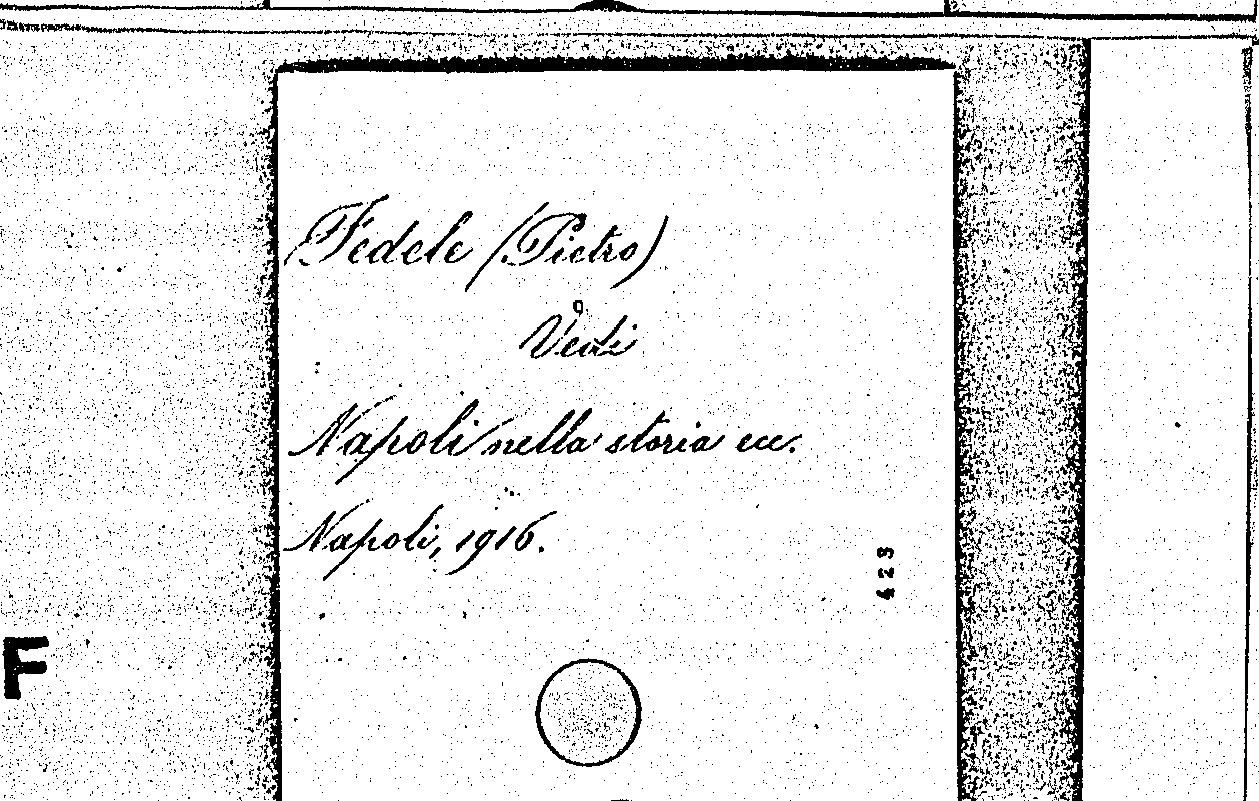 Fedele (Pietro)
Vedi
Napoli nella storia ecc.
Napoli, 1916.
423
F